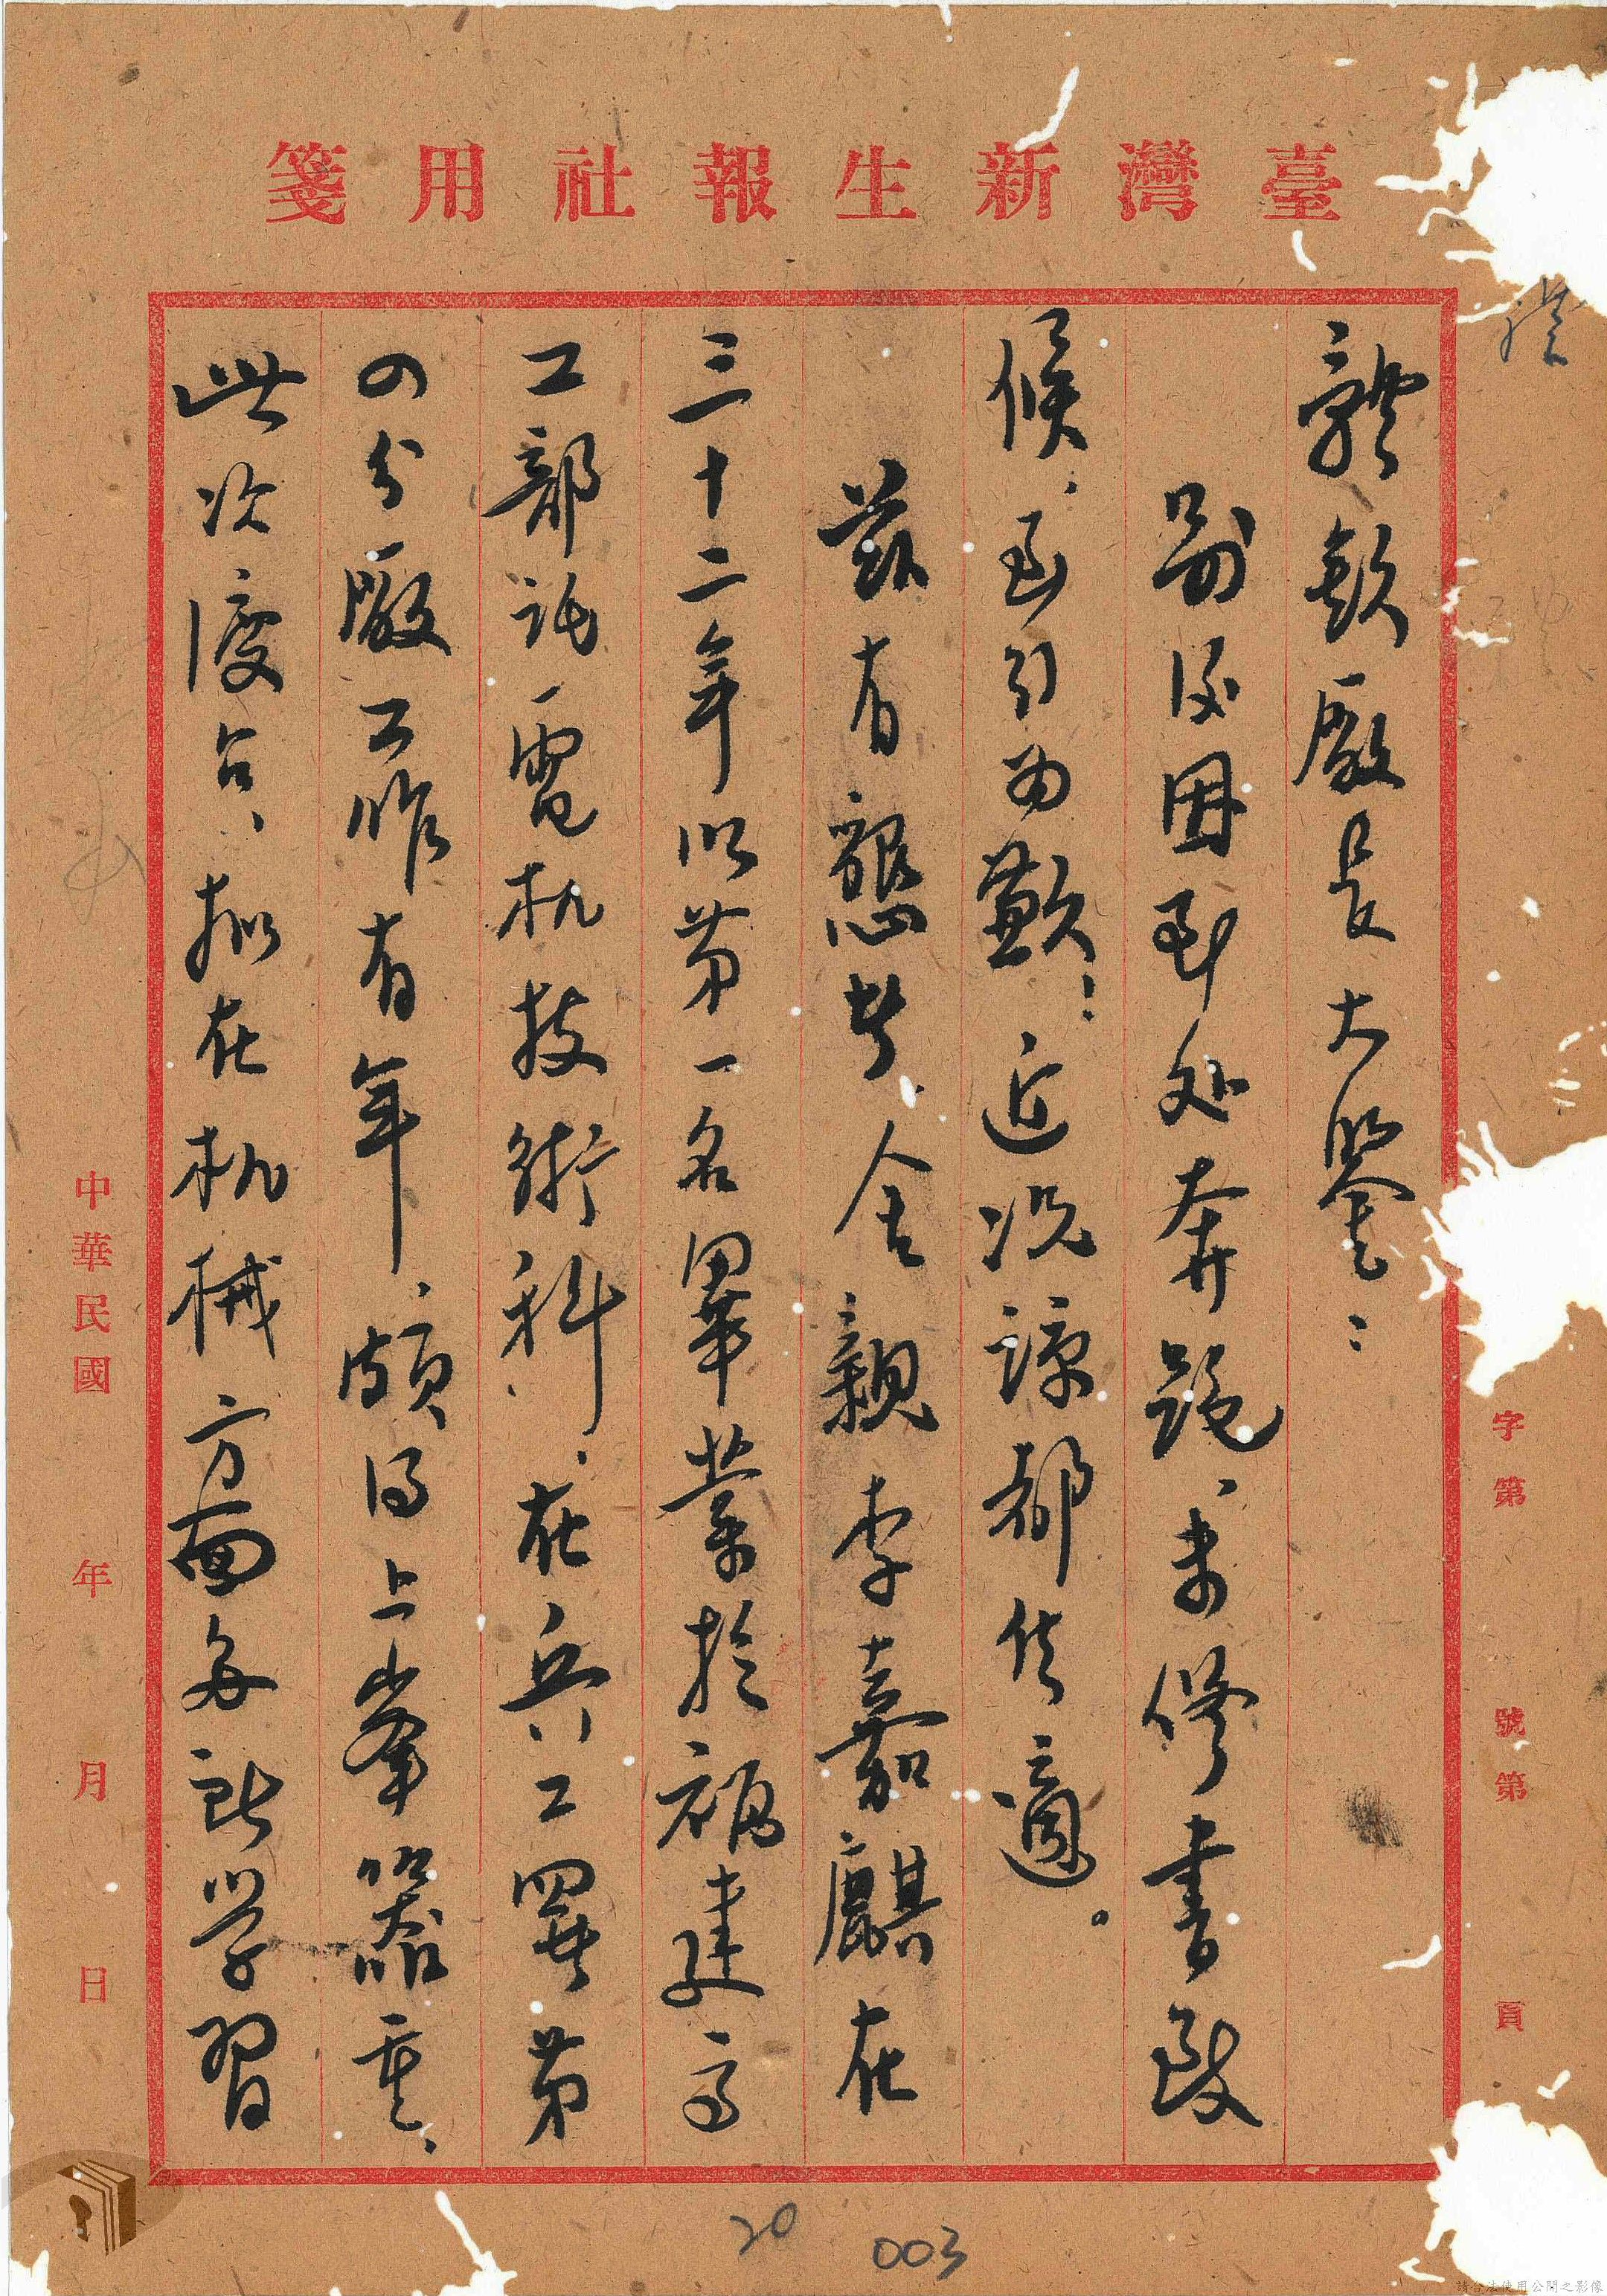 臺灣新生報社用箋
字第　號第　頁
體欽廠長大鑒：
別後因到处奔跑、未修書致
候、至引為歉：近况諒都佳適。
茲有懇者、舍親李嘉麒在
三十二年以第一名畢業於福建高
工部託電机技術科、在兵工署第
四分廠工作有年、頗得上峯器重、
此次渡台、拟在机械方面多学習
中華民國　年　月　日
20
003
請合法使用公開之影像